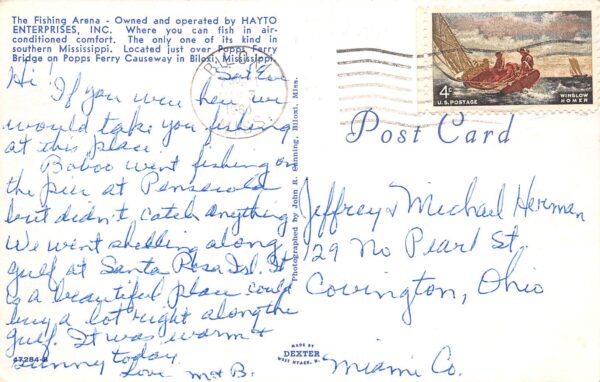 The Fishing Arena - Owned and operated by HAYTO
ENTERPRISES, INC. Where you can fish in air-
conditioned comfort. The only one of its kind in
southern Mississippi. Located just over Popps Ferry
Bridge on Popps Ferry Causeway in Biloxi, Mississippi.
Sat Eve
Hi!
If you were here we
would take you fishing
at this place.
Baboo went fishing on
the pier at Pensecola
but didn't catch anything
We went shelling along
gulf at Santa Rosa Isl. It
is a beautiful place could
buy a lot right along the
gulf. It was warm &
sunny today.
Love M & B.
47284-B
Photographed by John R. Canning, Biloxi, Miss.
MADE BY
DEXTER
WEST NYACK, N.
BILOXI
4¢
U.S. POSTAGE
WINSLOW
HOMER
Post Card
Jeffrey & Michael Herman
129 No Pearl St.
Covington, Ohio
Miami Co.